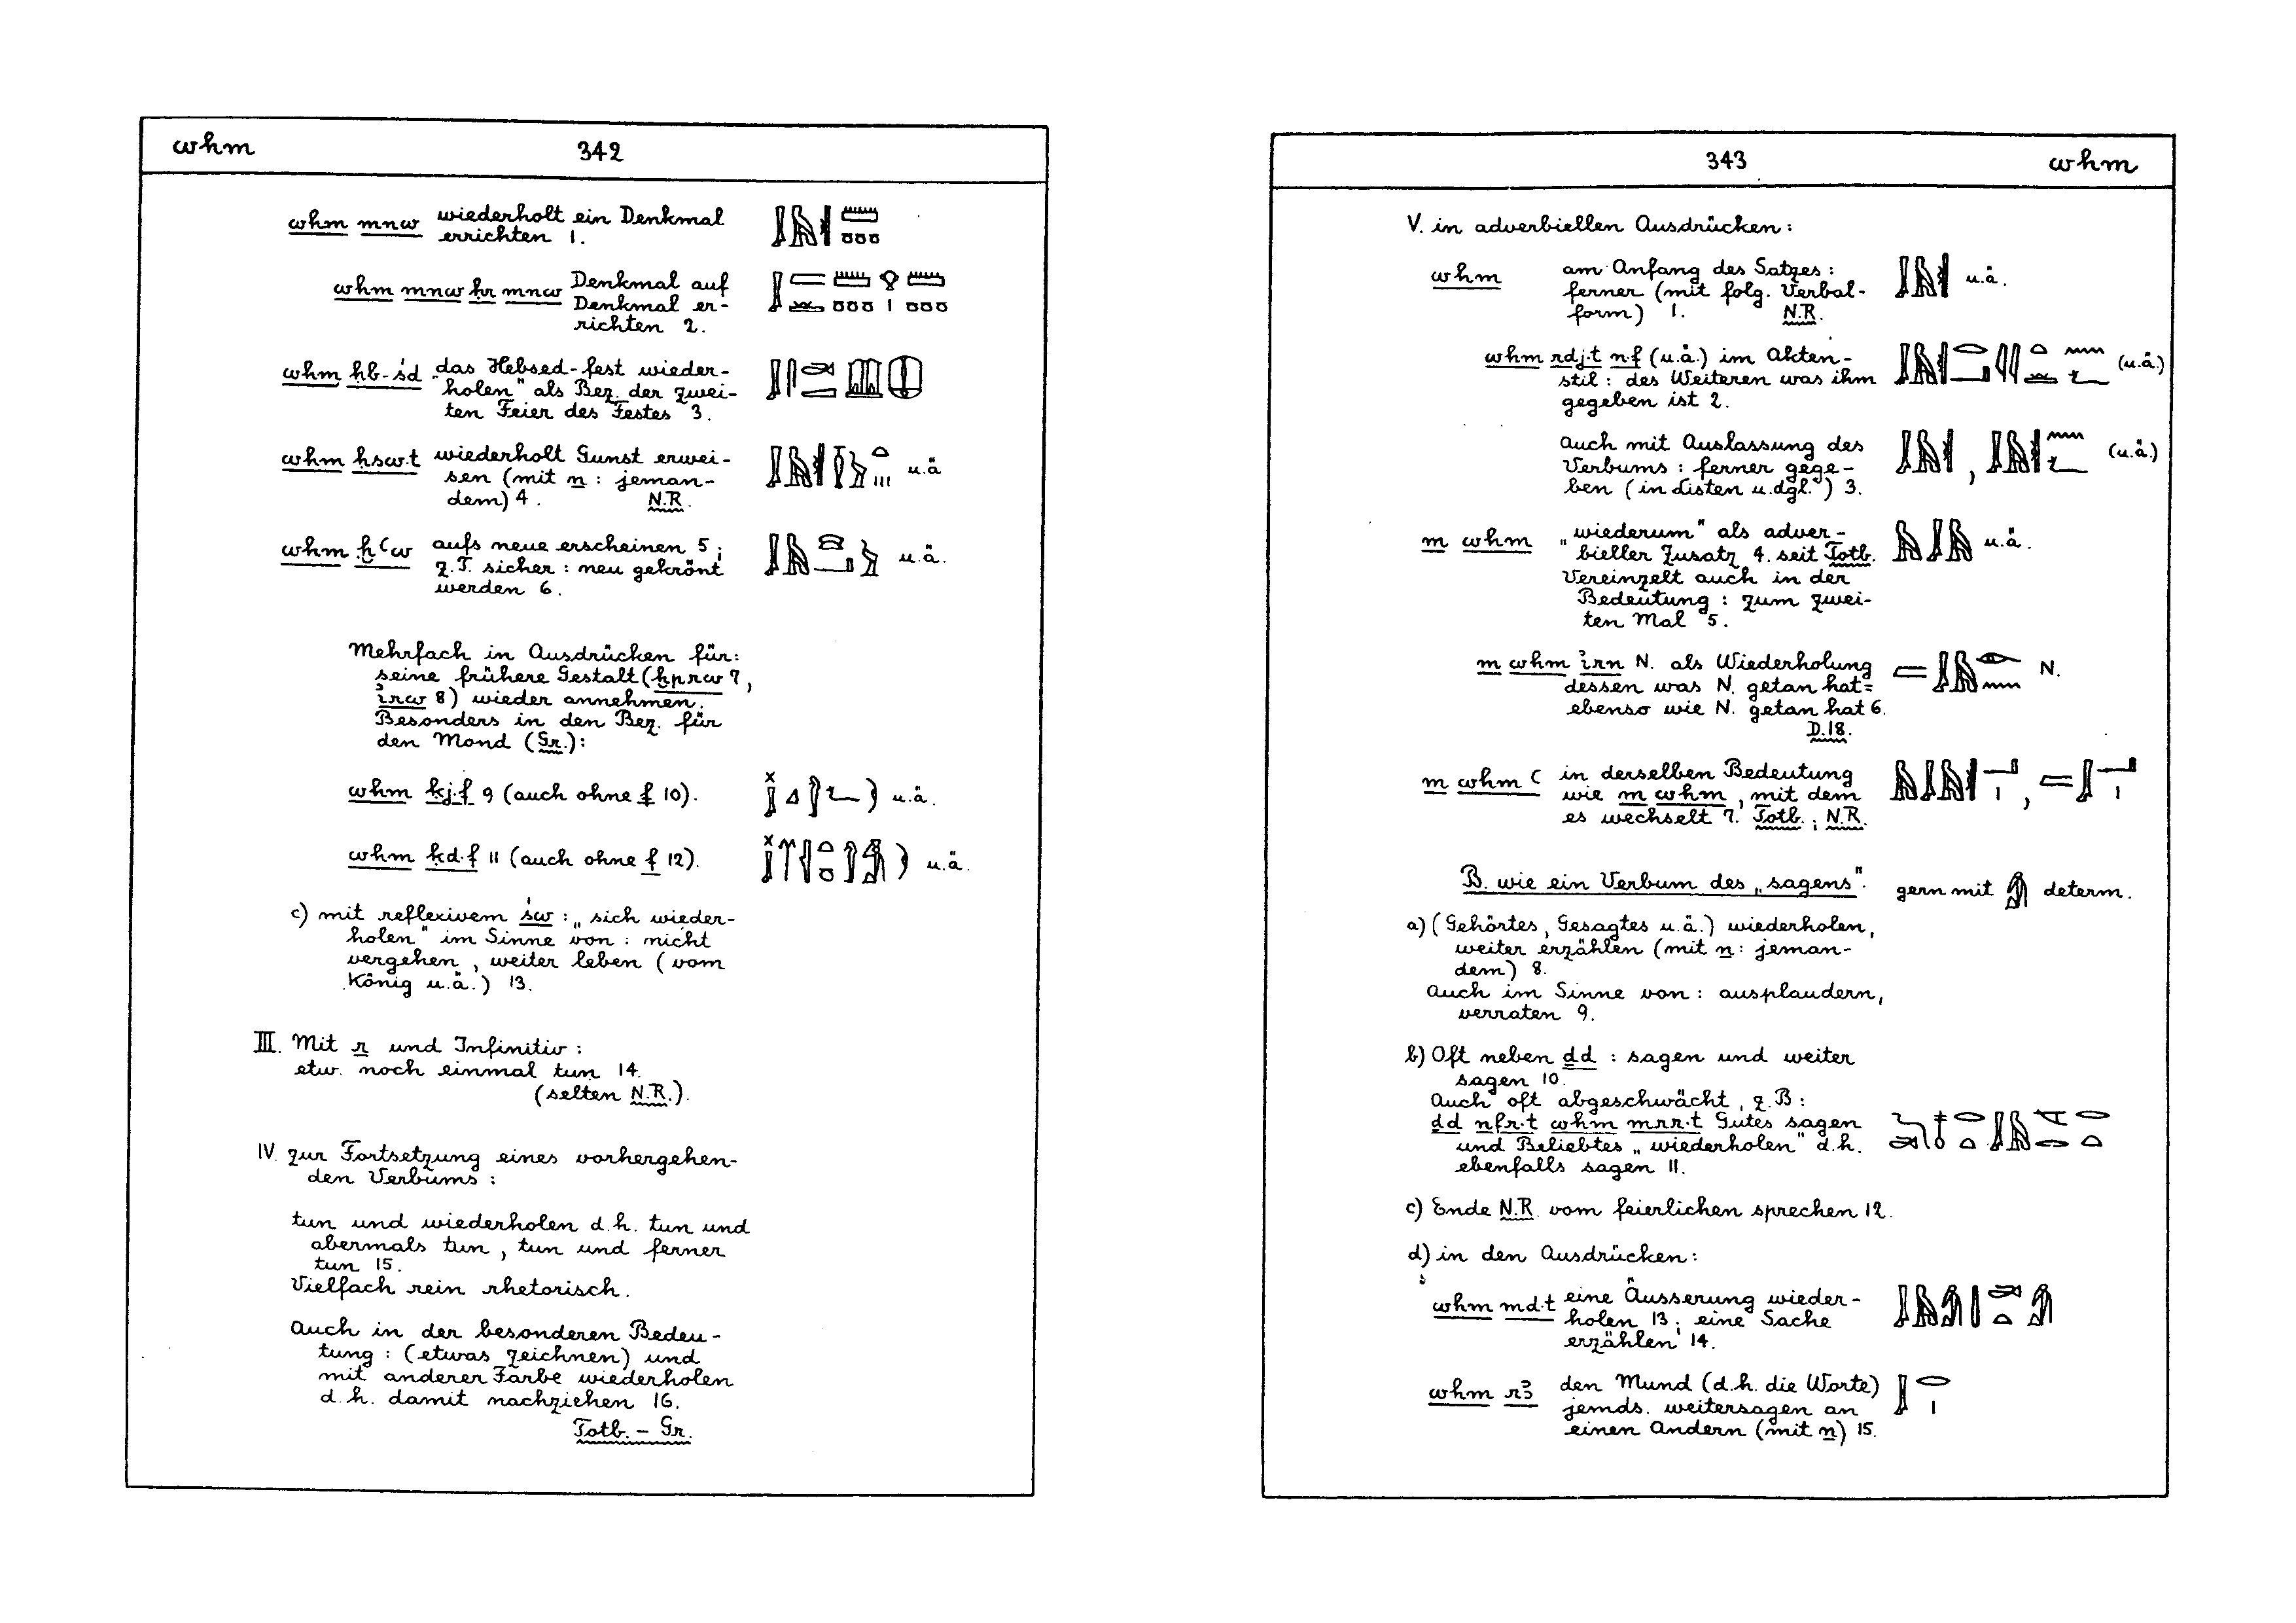 wḥm 342
wḥm mnw wiederholt ein Denkmal
errichten 1.
wḥm mnw ḥr mnw Denkmal auf
Denkmal er-
richten 2.
wḥm ḥb-śd „das Hebsed-fest wieder-
holen" als Bez. der zwei-
ten Feier des Festes 3.
wḥm ḥsw.t wiederholt Gunst erwei- u.ä
sen (mit n : jeman-
dem) 4. N.R.
wḥm ḫꜥw aufs neue erscheinen 5; u.ä.
z.T. sicher : neu gekrönt
werden 6.
Mehrfach in Ausdrücken für:
seine frühere Gestalt (ḫprw 7,
irw 8) wieder annehmen.
Besonders in den Bez. für
den Mond (Gr.):
wḥm ḳj.f 9 (auch ohne f 10). u.ä.
wḥm ḳd.f 11 (auch ohne f 12). u.ä.
c) mit reflexivem św : „sich wieder-
holen" im Sinne von : nicht
vergehen, weiter leben (vom
König u.ä.) 13.
III. Mit r und Infinitiv :
etw. noch einmal tun 14.
(selten N.R.).
IV. zur Fortsetzung eines vorhergehen-
den Verbums :
tun und wiederholen d.h. tun und
abermals tun, tun und ferner
tun 15.
Vielfach rein rhetorisch.
Auch in der besonderen Bedeu-
tung : (etwas zeichnen) und
mit anderer Farbe wiederholen
d.h. damit nachziehen 16.
Totb. – Gr.
343 wḥm
V. in adverbiellen Ausdrücken :
wḥm am Anfang des Satzes : u.ä.
ferner (mit folg. Verbal-
form) 1. N.R.
wḥm rdj.t n.f (u.ä.) im Akten- (u.ä.)
stil : des Weiteren was ihm
gegeben ist 2.
auch mit Auslassung des , (u.ä.)
Verbums : ferner gege-
ben (in Listen u.dgl.) 3.
m wḥm „wiederum" als adver- u.ä.
bieller Zusatz 4. seit Totb.
Vereinzelt auch in der
Bedeutung : zum zwei-
ten Mal 5.
m wḥm irn N. als Wiederholung N.
dessen was N. getan hat =
ebenso wie N. getan hat 6.
D.18.
m wḥm ꜥ in derselben Bedeutung ,
wie m wḥm, mit dem
es wechselt 7. Totb.; N.R.
B. wie ein Verbum des „sagens". gern mit determ.
a) (Gehörtes, Gesagtes u.ä.) wiederholen,
weiter erzählen (mit n : jeman-
dem) 8.
Auch im Sinne von : ausplaudern,
verraten 9.
b) Oft neben ḏd : sagen und weiter
sagen 10.
Auch oft abgeschwächt, z.B :
ḏd nfr.t wḥm mrr.t Gutes sagen
und Beliebtes „wiederholen" d.h.
ebenfalls sagen 11.
c) Ende N.R. vom feierlichen sprechen 12.
d) in den Ausdrücken :
wḥm md.t eine Äusserung wieder-
holen 13; eine Sache
erzählen 14.
wḥm rꜣ den Mund (d.h. die Worte)
jemds. weitersagen an
einen Andern (mit n) 15.